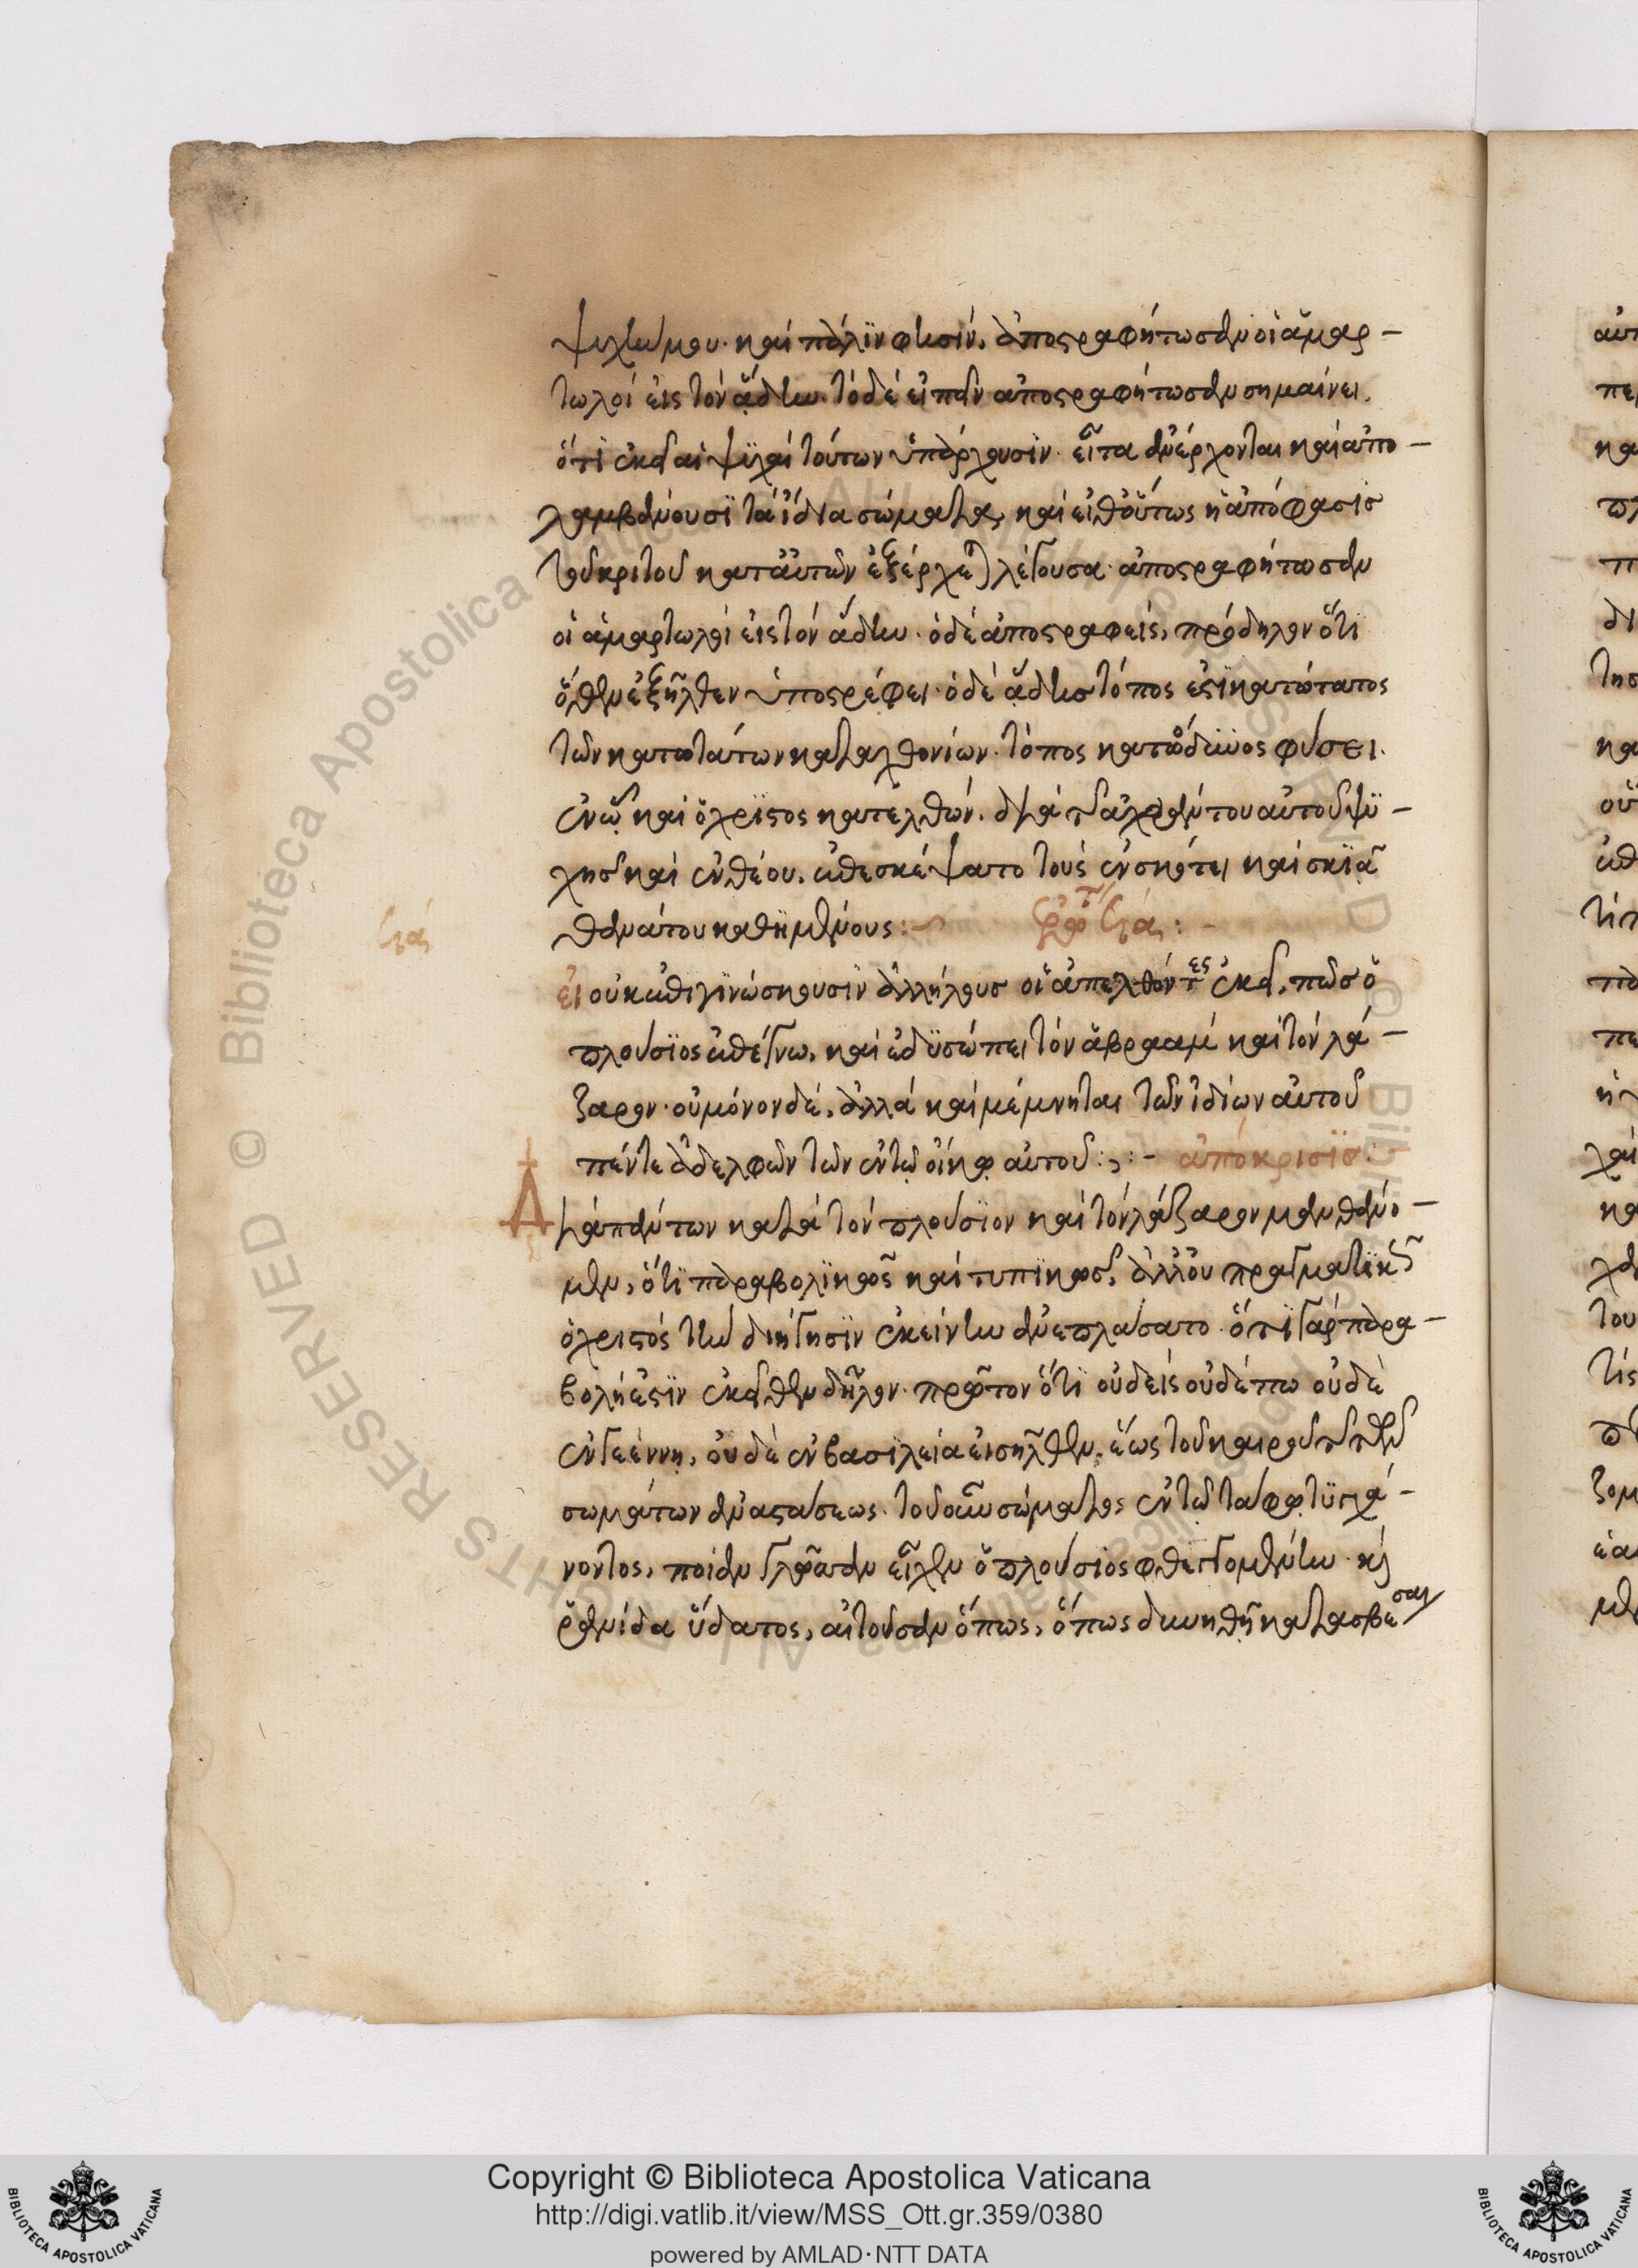 ψυχὴν μου· καὶ πάλϊν φησὶν, ἀποστραφήτωσαν οἱ ἁμαρ-
τωλοὶ εἰς τὸν ᾅδην· τὸ δὲ εἰπεῖν ἀποστραφήτωσαν σημαίνει,
ὅτϊ ἐκεῖ αἱ ψϋχαὶ τούτων ὑπάρχουσϊν· εἶτα ἀνέρχονται καὶ ἀπο-
λαμβάνουσϊ τὰ ἴδια σώματα, καὶ εἶθ οὕτως ἡ ἀπόφασις
τοῦ κριτοῦ κατ αὐτῶν ἐξέρχεται λέγουσα· ἀποστραφήτωσαν
οἱ ἁμαρτωλοὶ εἰς τὸν ᾅδην· ὁ δὲ ἀποστραφεὶς, πρόδηλον ὅτι
ὅθεν ἐξῆλθεν ὑποστρέφει· ὁ δὲ ᾅδης τόπος ἐστϊ κατώτατος
τῶν κατωτάτων καταχθονίων· τόπος κατώδυνος φύσει.
ἐν ᾧ καὶ ὁ χριστὸς κατελθών, διὰ τῆς ἀχράντου αὐτοῦ ψϋ-
χῆς καὶ ἐνθέου, ἐπεσκέψατο τοὺς ἐν σκότει καὶ σκϊᾷ
θανάτου καθημένους:~ ἐρώτ ια:
ια
εἰ οὐκ ἐπιγινώσκουσϊν ἀλλήλους οἱ ἀπελθόντες ἐκεῖ, πῶς ὁ
πλούσϊος ἐπέγνω, καὶ ἐδυσώπει τὸν ἀβραὰμ καὶ τὸν λά-
ζαρον· οὐ μόνον δὲ, ἀλλὰ καὶ μέμνηται τῶν ἰδίων αὐτοῦ
πέντε ἀδελφῶν τῶν ἐν τῷ οἴκῳ αὐτοῦ:,:- ἀπόκρισϊς:
Διὰ πάντων κατὰ τὸν πλούσιον καὶ τὸν λάζαρον μανθάνο-
μεν, ὅτϊ παραβολϊκῶς καὶ τυπϊκῶς, ἀλλ οὐ πραγματϊκῶς
ὁ χριστὸς τὴν διήγησϊν ἐκείνην ἀνεπλάσατο· ὅτϊ γὰρ παρα-
βολή ἐστϊν ἐκεῖθεν δῆλον· πρῶτον ὅτϊ οὐδεὶς οὐδέπω οὐδὲ
ἐν γεέννῃ, οὐδὲ ἐν βασιλεία εἰσῆλθεν, ἕως τοῦ καιροῦ τῆς τῶν
σωμάτων ἀναστάσεως· τοῦ οὖν σώματος ἐν τῷ τάφῳ τϋγχά-
νοντος, ποίαν γλῶσσαν εἶχεν ὁ πλούσϊος φθεγγομένην· καὶ
ῥανίδα ὕδατος, αἰτοῦσαν ὅπως, ὅπως δυνηθῇ κατασβέσαι